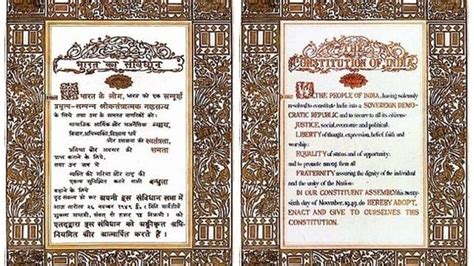 भारत का संविधान
भारत के लोग, भारत को एक सम्पूर्ण
प्रभुत्व-सम्पन्न लोकतंत्रात्मक गणराज्य
के लिये तथा उस के समस्त नागरिकों को:
सामाजिक आर्थिक और राजनैतिक न्याय,
विचार,अभिव्यक्ति,विश्वास धर्म
और उपासना की स्वतंत्रता,
प्रतिष्ठा और अवसर की समता
प्राप्त कराने के लिये,
तथा उन सब में
व्यक्ति की गरिमा और राष्ट्र की
एकता सुनिश्चित करने वाली बन्धुता
बढ़ाने के लिये
दृढ़ संकल्प हो कर अपनी इस संविधान सभा में
आज तारीख २६ नवम्बर १९४९ ई० (मिति मार्गशीर्ष
शुक्ला सप्तमी, सम्वत् दो हज़ार छै विक्रमी) को
एतद्द्वारा इस संविधान को अङ्गीकृत अधि-
नियमित और आत्मार्पित करते हैं।
THE
CONSTITUTION OF INDIA
WE, THE PEOPLE OF INDIA, having solemnly
resolved to constitute India into a SOVEREIGN DEMO-
CRATIC REPUBLIC and to secure to all its citizens:
JUSTICE, social, economic and political;
LIBERTY of thought, expression, belief, faith and
worship;
EQUALITY of status and of opportunity;
and to promote among them all
FRATERNITY assuring the dignity of the individual
and the unity of the Nation;
IN OUR CONSTITUENT ASSEMBLY this twenty-
sixth day of November, 1949, do HEREBY ADOPT,
ENACT AND GIVE TO OURSELVES THIS
CONSTITUTION.